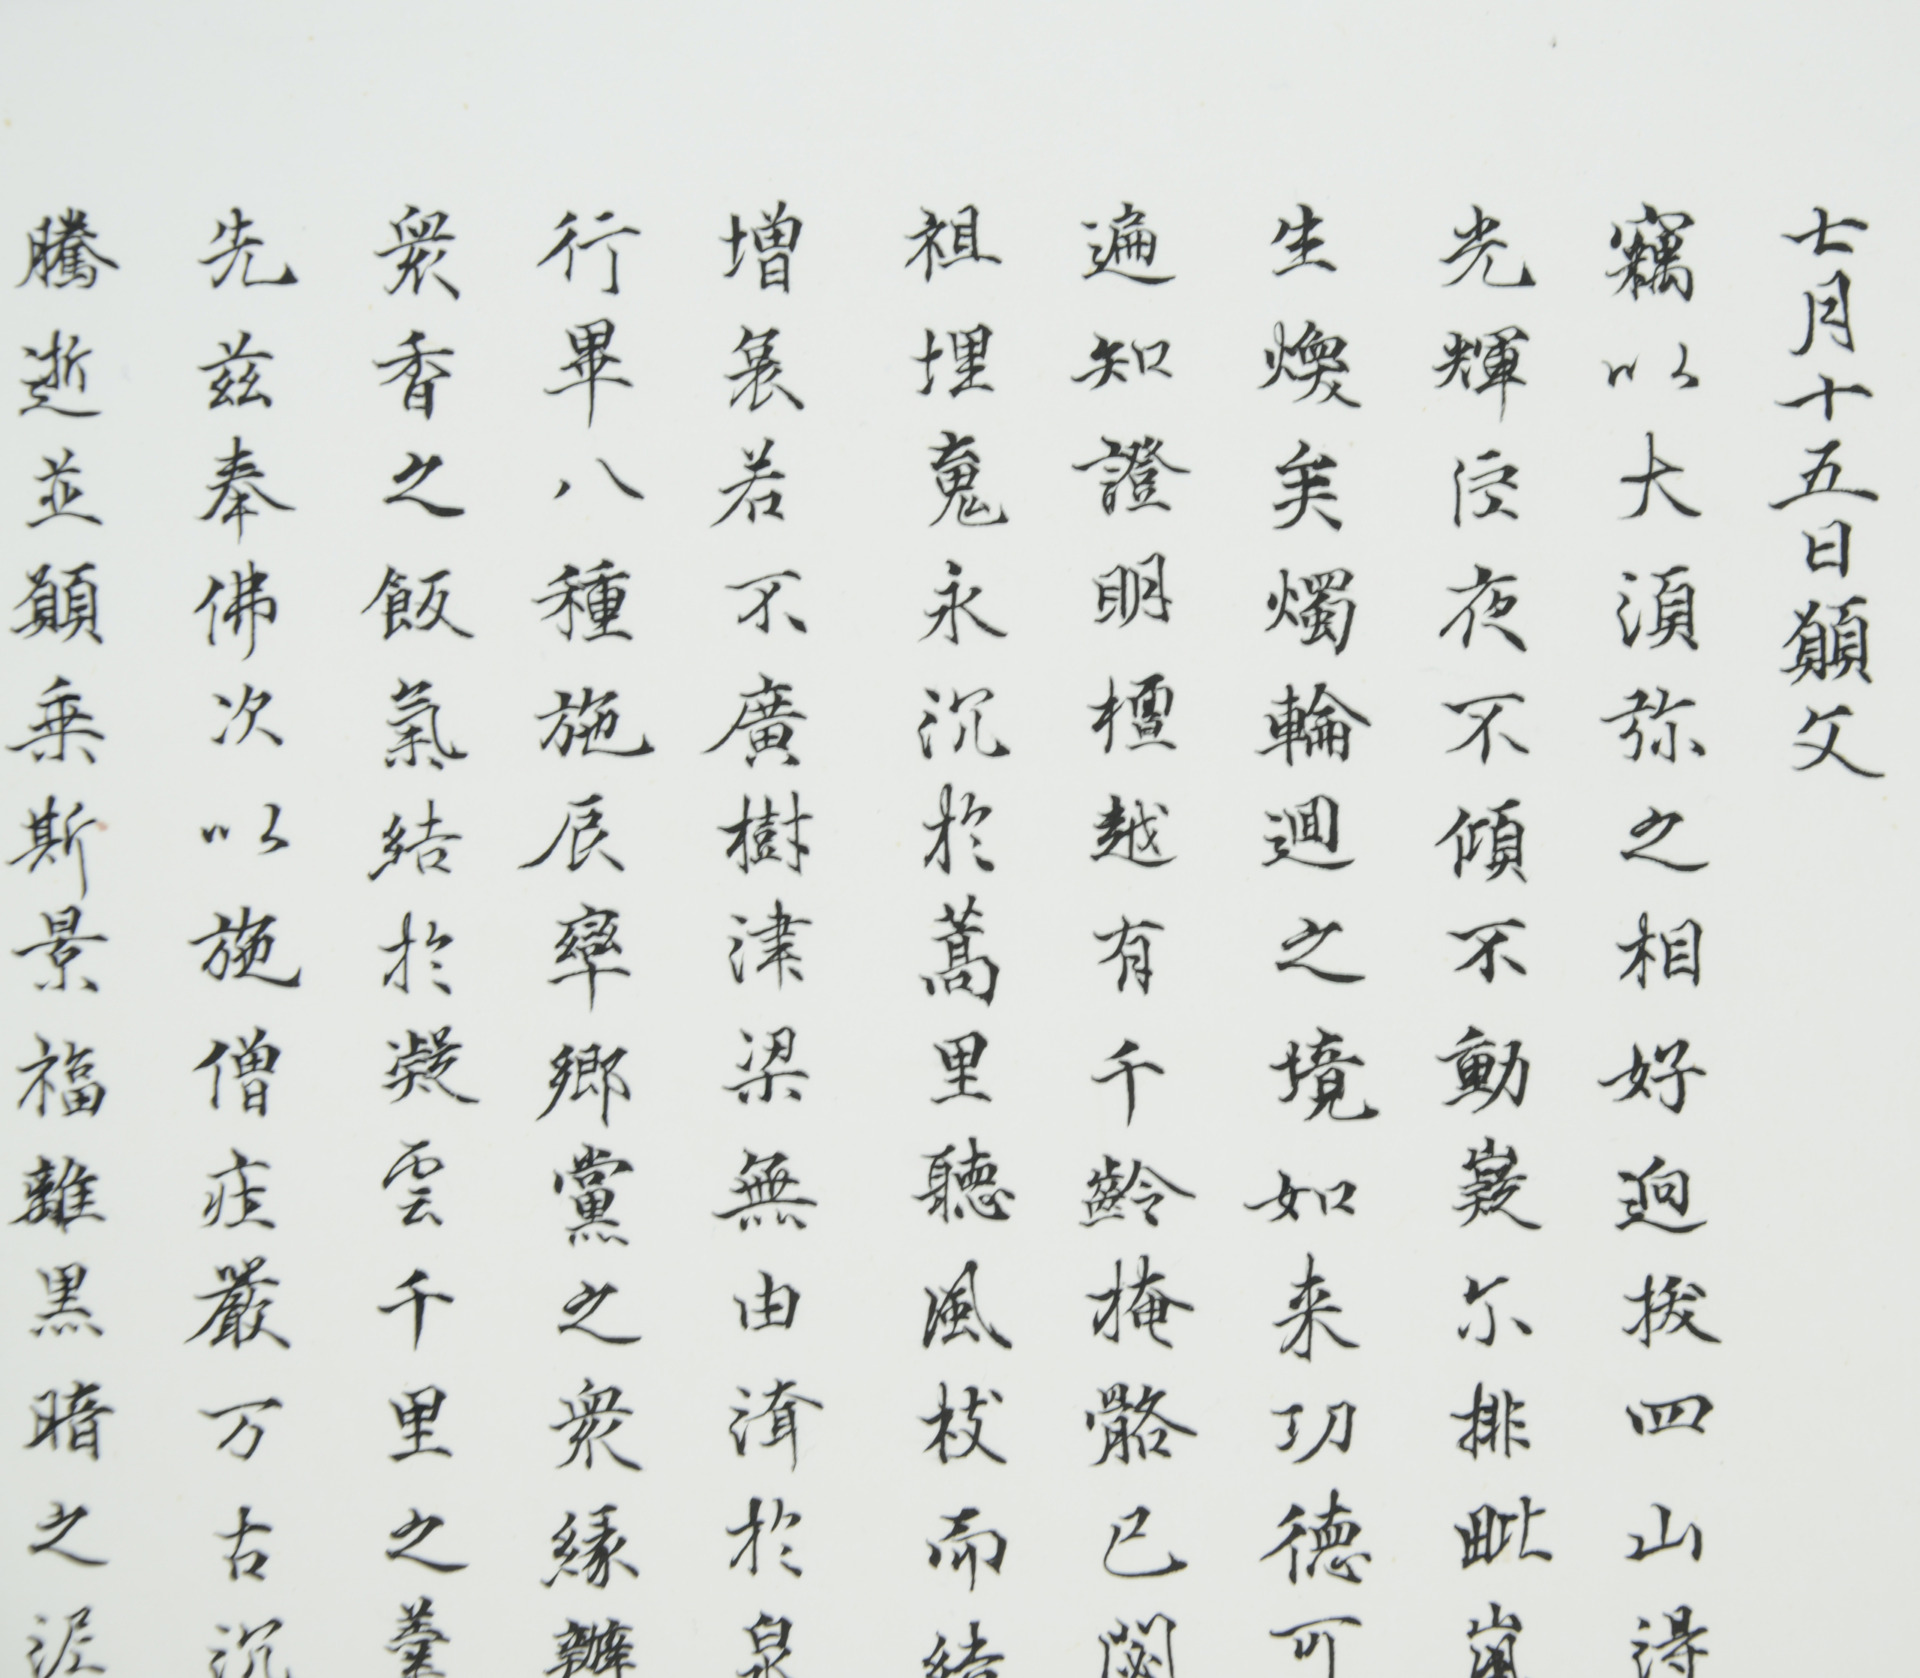 七月十五日願文
竊以大須弥之相好逈拔四山得
光輝径夜不傾不動嶷尓排毗嵐
生煥矣燭輪迴之境如来功徳可
遍知證明檀越有千齡掩骼已閟
祖埋䰟永沉於蒿里聽風枝而結
增衰若不廣樹津梁無由濟於泉
行畢八種施辰率鄉黨之衆緣辦
衆香之飯氣結於凝雲千里之羹
先茲奉佛次以施僧庄嚴万古沉
騰逝並願乗斯景福離黒暗之泥